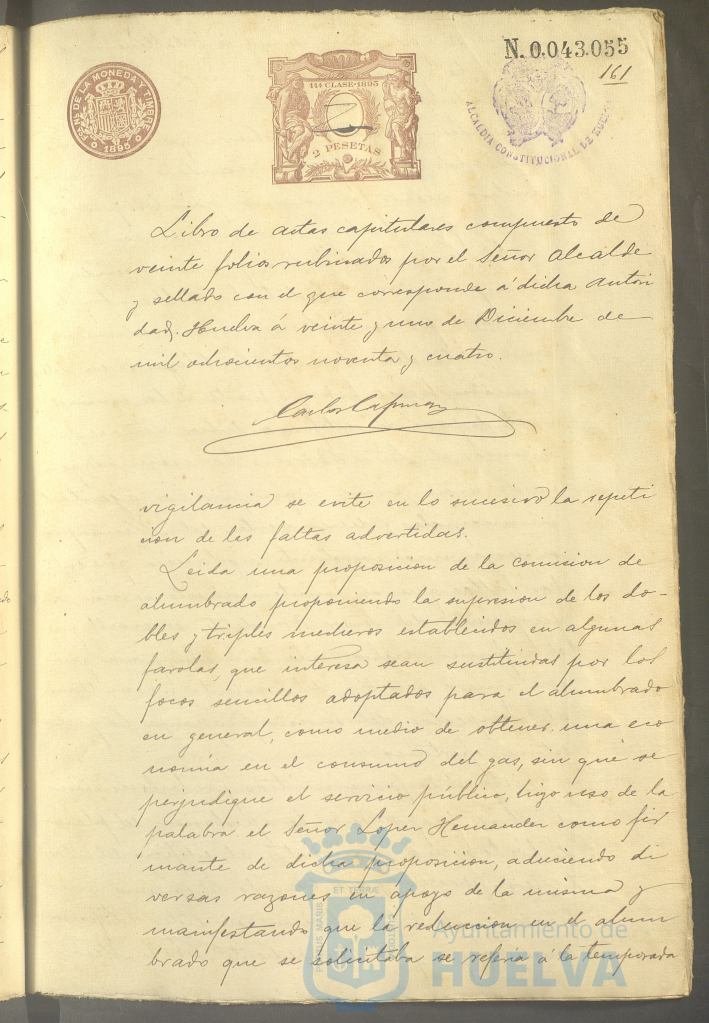 N. 0.043.055
161
FÁBRICA NACIONAL DE LA MONEDA Y TIMBRE
1895
11ª CLASE-1895
2 PESETAS
ALCALDIA CONSTITUCIONAL DE HUELVA
Libro de actas capitulares compuesto de
veinte folios rubricados por el Señor Alcalde
y sellado con el que corresponde á dicha Autori
dad. Huelva á veinte y uno de Diciembre de
mil ochocientos noventa y cuatro.
Carlos
vigilancia se evite en lo sucesivo la repeti
cion de las faltas advertidas.
Leida una proposicion de la comision de
alumbrado proponiendo la supresion de los do-
bles y triples mecheros establecidos en algunas
farolas, que interesa sean sustituidas por los
focos sencillos adoptados para el alumbrado
en general, como medio de obtener una eco
nomía en el consumo del gas, sin que se
perjudique el servicio público, hizo uso de la
palabra el Señor Lopez Hernandez como fir
mante de dicha proposicion, aduciendo di
versas razones en apoyo de la misma y
manifestando que la reduccion en el alum
brado que se solicitaba se referia á la temporada
Ayuntamiento de
HUELVA